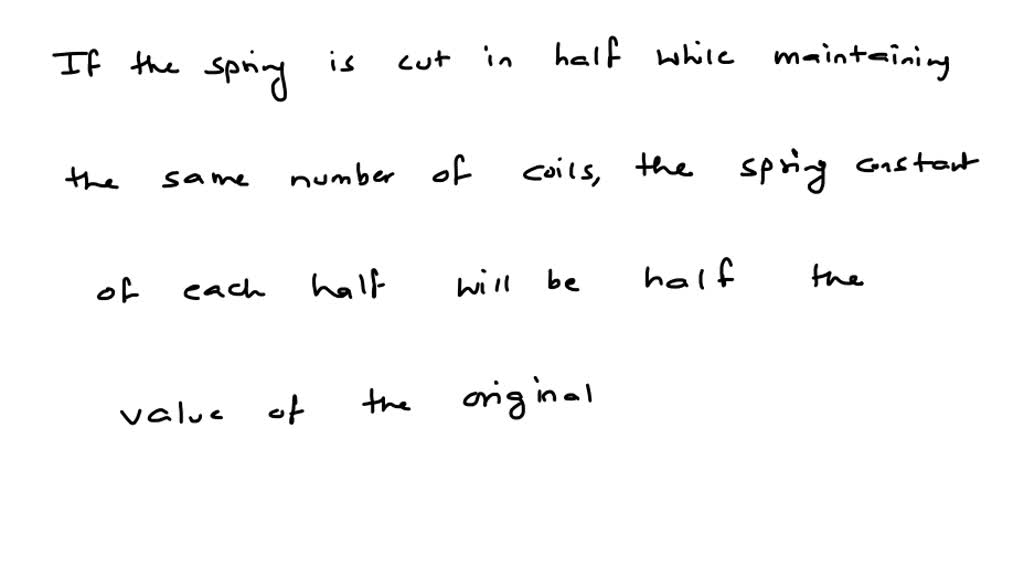 If the spring is cut in half while maintaining
the same number of coils, the spring constant
of each half will be half the
value of the original